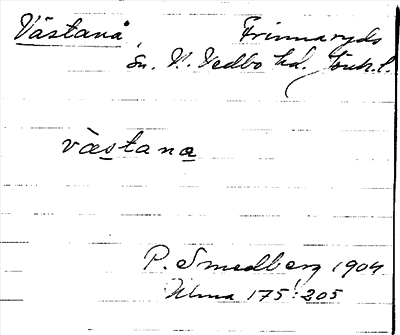 Västanå, Frinnaryds
sn. N. Vedbo hd. Jönk.l.
væstana
P. Smedberg 1904
Ulma 175:205